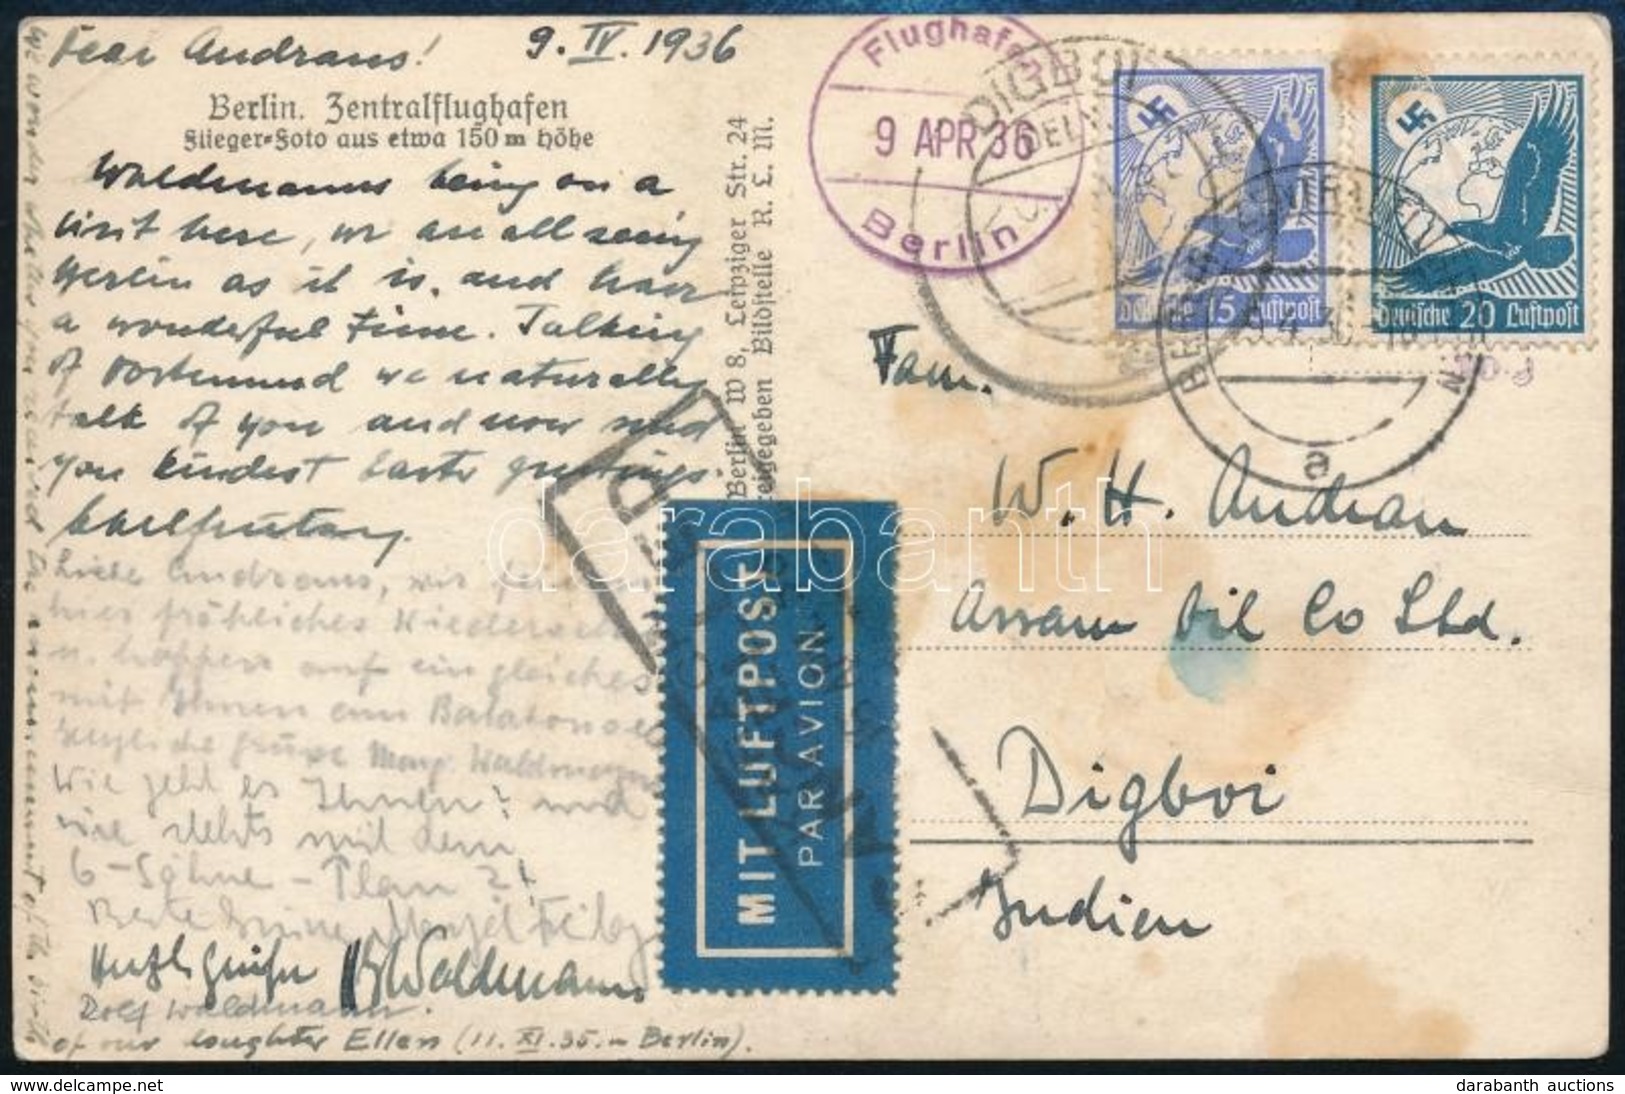 Dear Andrans! 9. IV. 1936
Berlin. Zentralflughafen
Flieger-Foto aus etwa 150 m Höhe
Waldmanns being on a
visit here, we are all seeing
Berlin as it is, and have
a wonderful time. Talking
of Dortmund we naturally
talk of you and now send
you kindest Easter greetings.
Liebe Andrans, wir feiern
hier fröhliches Wiedersehen
u. hoffen auf ein gleiches
mit Ihnen am Balaton
Herzliche Grüße Waldmann
Wie geht es Ihnen? und
wie stehts mit dem
6-Söhne-Plan?
Beste Grüsse
Waldmann
Rolf Waldmann.
We wonder whether you received the announcement of the birth
of our daughter Ellen (11. XI. 35. in Berlin).
Berlin W 8, Leipziger Str. 24
freigegeben Bildstelle R. L. M.
Flughafen
9 APR 36
Berlin
DIGBOI
Deutsche 15 Luftpost
Deutsche 20 Luftpost
MIT LUFTPOST
PAR AVION
Fam.
W. H. Andran
Assam Oil Co Ltd.
Digboi
Indien
darabanth
darabanth auctions